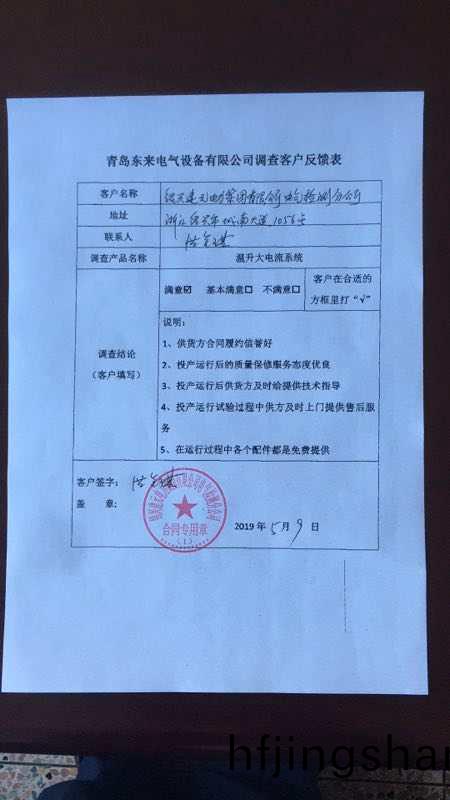 青岛东来电气设备有限公司调查客户反馈表
客户名称 绍兴建元电力集团有限公司电气检测分公司
地址 浙江绍兴市城南大道1056号
联系人
调查产品名称 温升大电流系统
调查结论
(客户填写)
满意☑ 基本满意□ 不满意□
客户在合适的
方框里打“√”
说明:
1、供货方合同履约信誉好
2、投产运行后的质量保修服务态度优良
3、投产运行后供货方及时给提供技术指导
4、投产运行试验过程中供方及时上门提供售后服
务
5、在运行过程中各个配件都是免费提供
客户签字:
盖 章:
合同专用章
(1)
2019年5月9日
hfjingshan